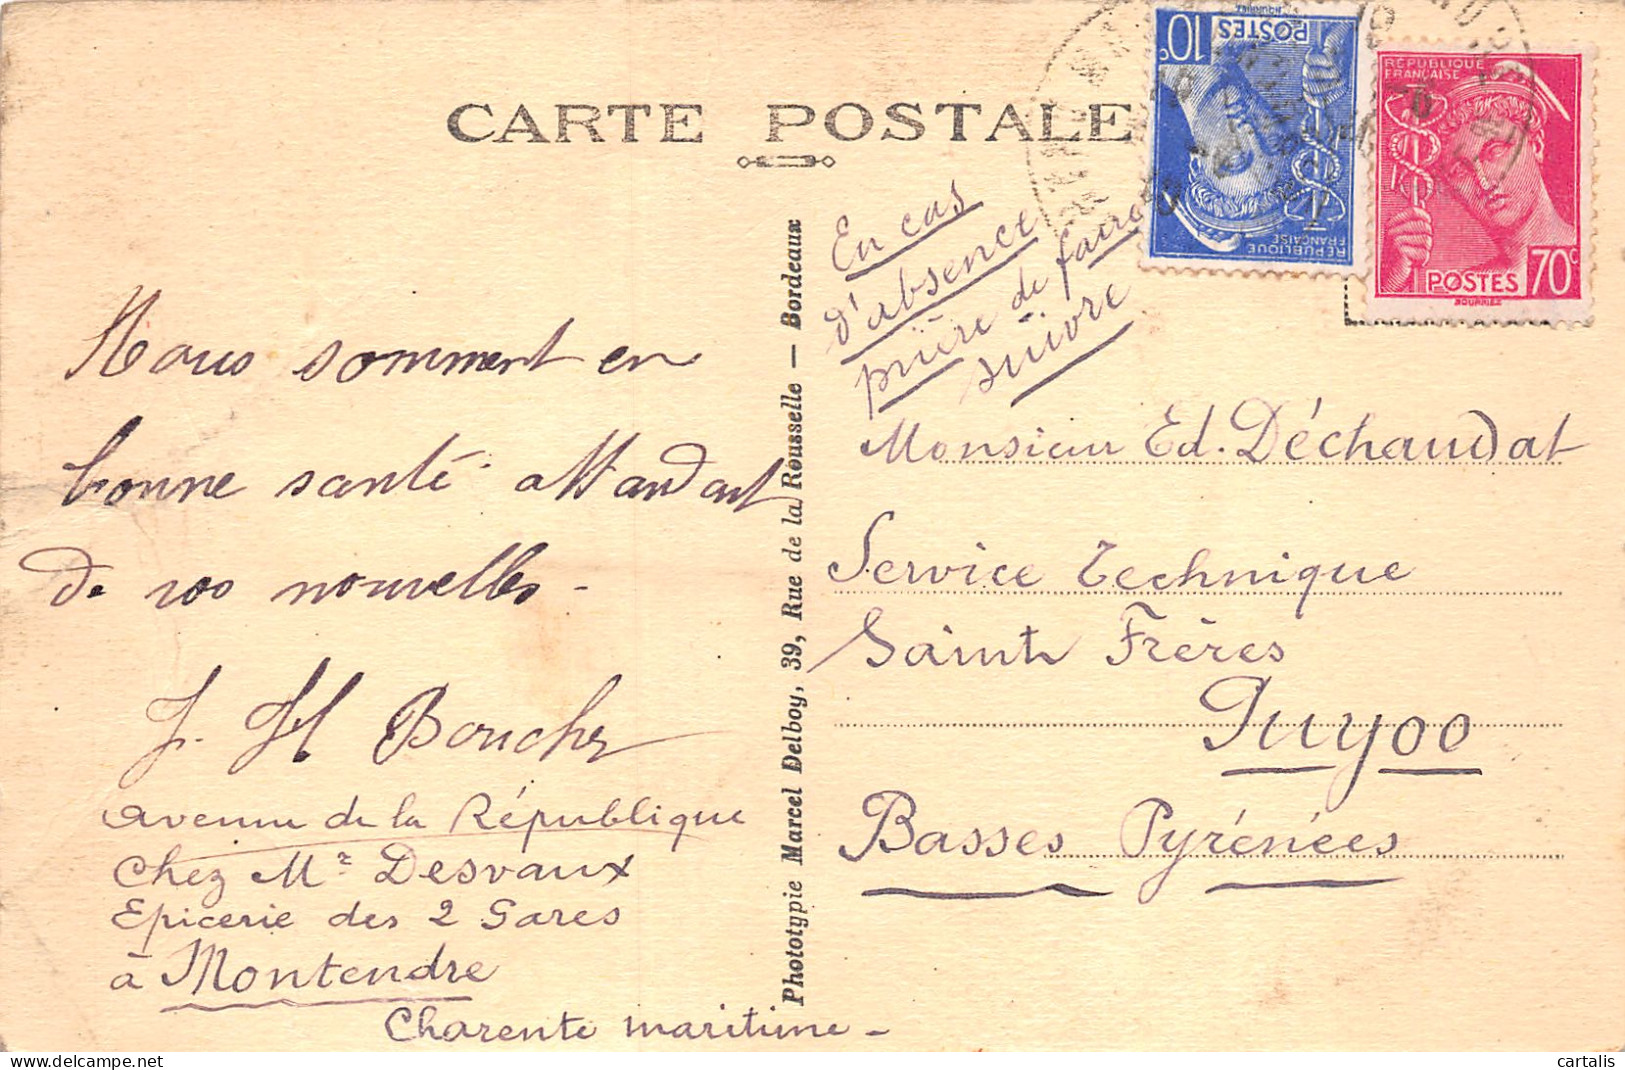 CARTE POSTALE
Nous somment en
bonne santé attandant
de vos nouvelles -
J. H Boucher
avenue de la République
Chez Mr Desvaux
Epicerie des 2 Gares
à Montendre
Charente maritime -
Phototypie Marcel Delboy, 39, Rue de la Rousselle — Bordeaux
En cas
d'absence
prière de faire
suivre
POSTES
10c
RÉPUBLIQUE
FRANÇAISE
RÉPUBLIQUE
FRANÇAISE
POSTES 70c
Monsieur Ed. Déchaudat
Service Technique
Saint Frères
Puyoo
Basses Pyrénées
cartalis